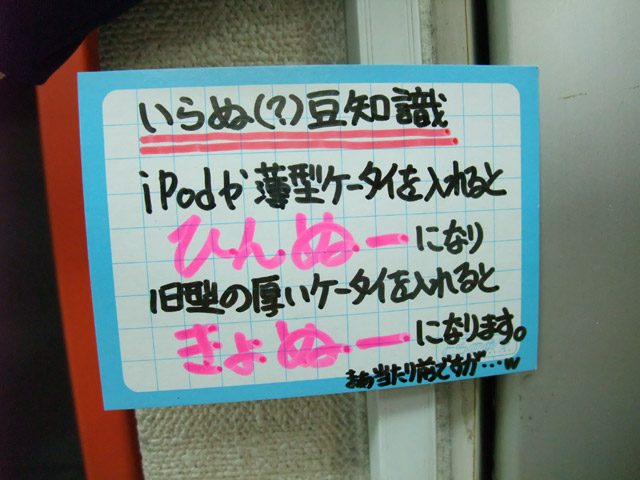 いらぬ(?)豆知識
iPodや薄型ケータイを入れると
ひんぬーになり
旧型の厚いケータイを入れると
きょぬーになります。
まあ当たり前ですが…w